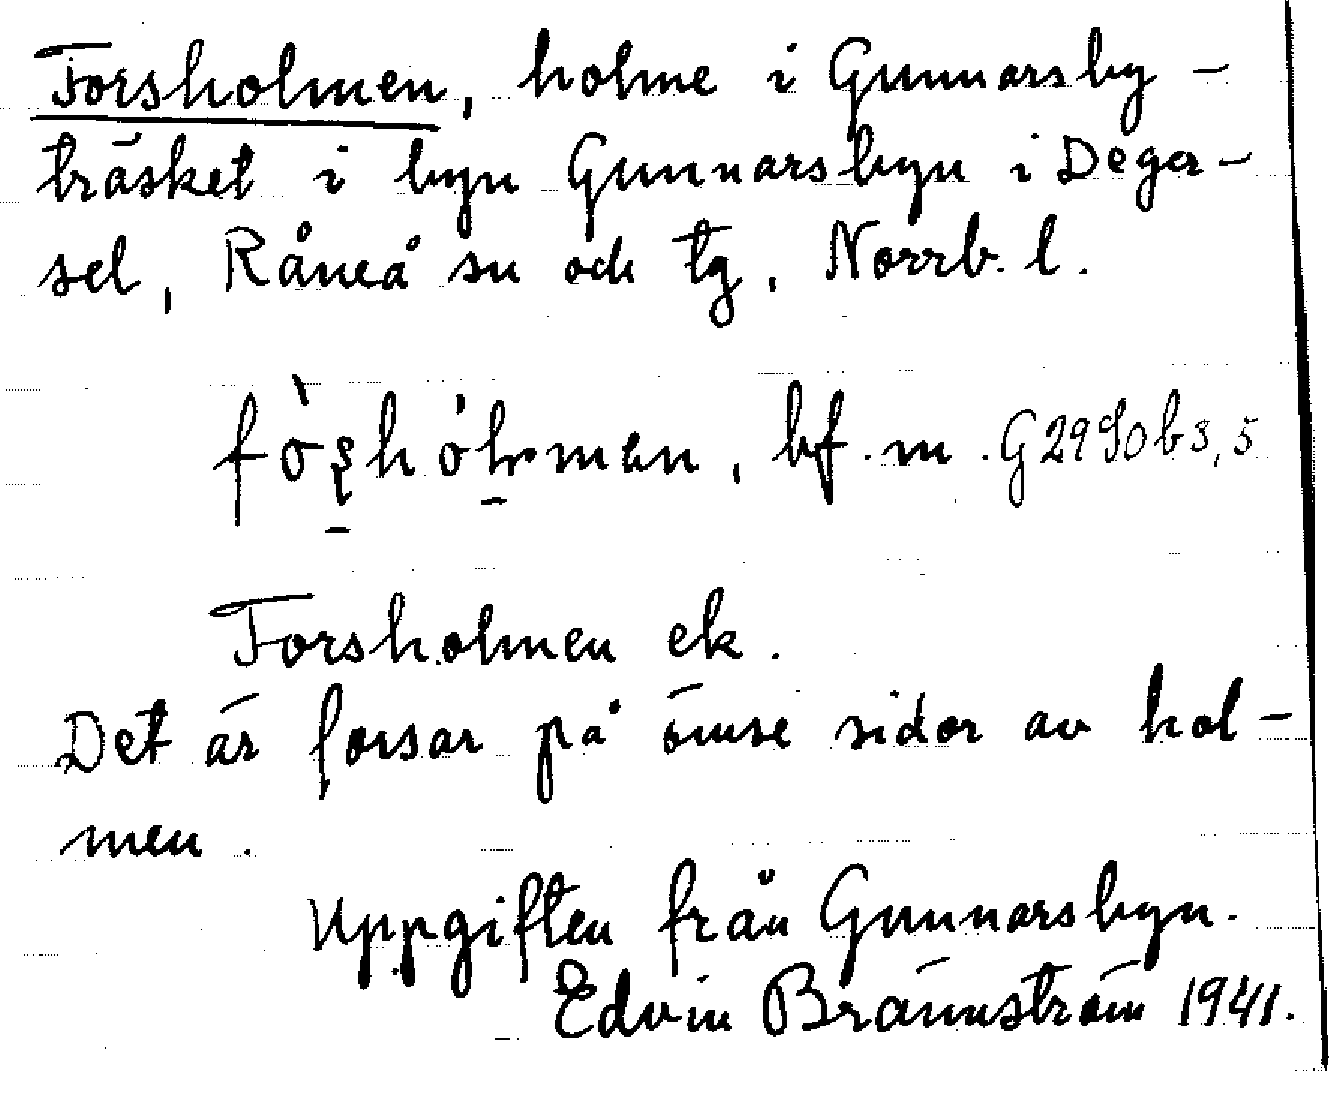 Forsholmen, holme i Gunnarsby-
träsket i byn Gunnarsbyn i Deger-
sel, Råneå sn och tg, Norrb. l.
bf. m.
Forsholmen ek.
Det är forsar på ömse sidor av hol-
men.
Uppgiften från Gunnarsbyn.
Edvin Brännström 1941.